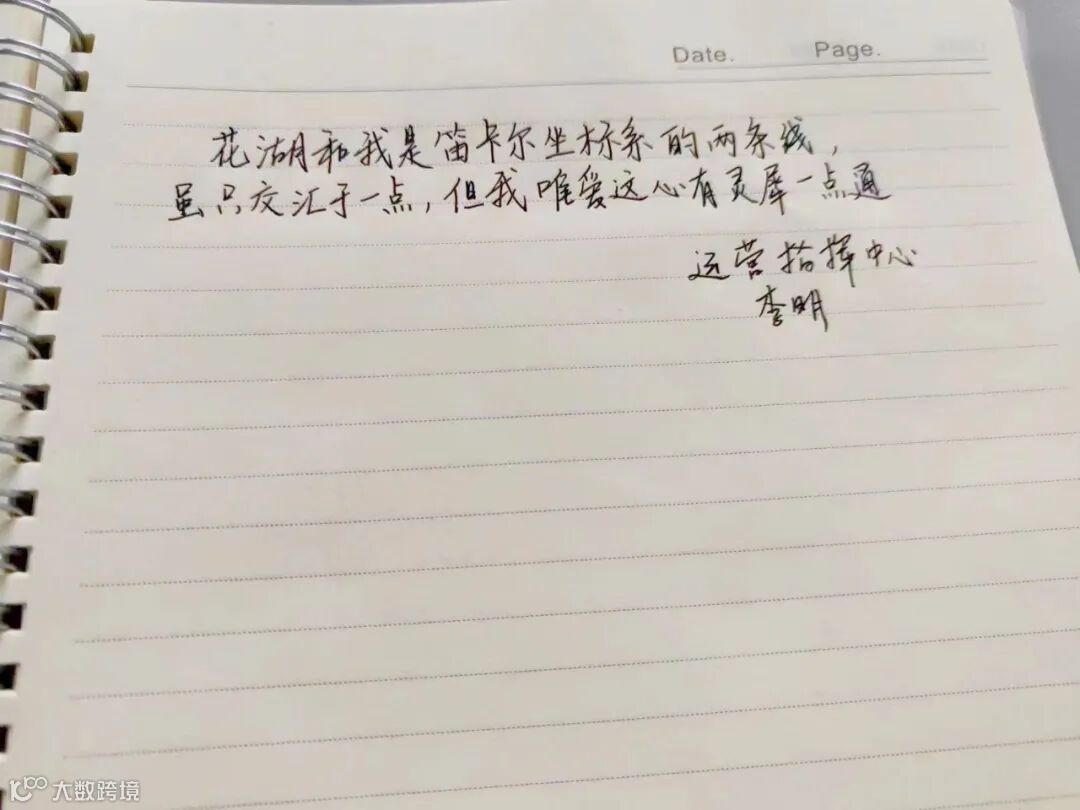 Date. Page.
花湖和我是笛卡尔坐标系的两条线，
虽只交汇于一点，但我唯爱这心有灵犀一点通
运营指挥中心
李明
大数跨境